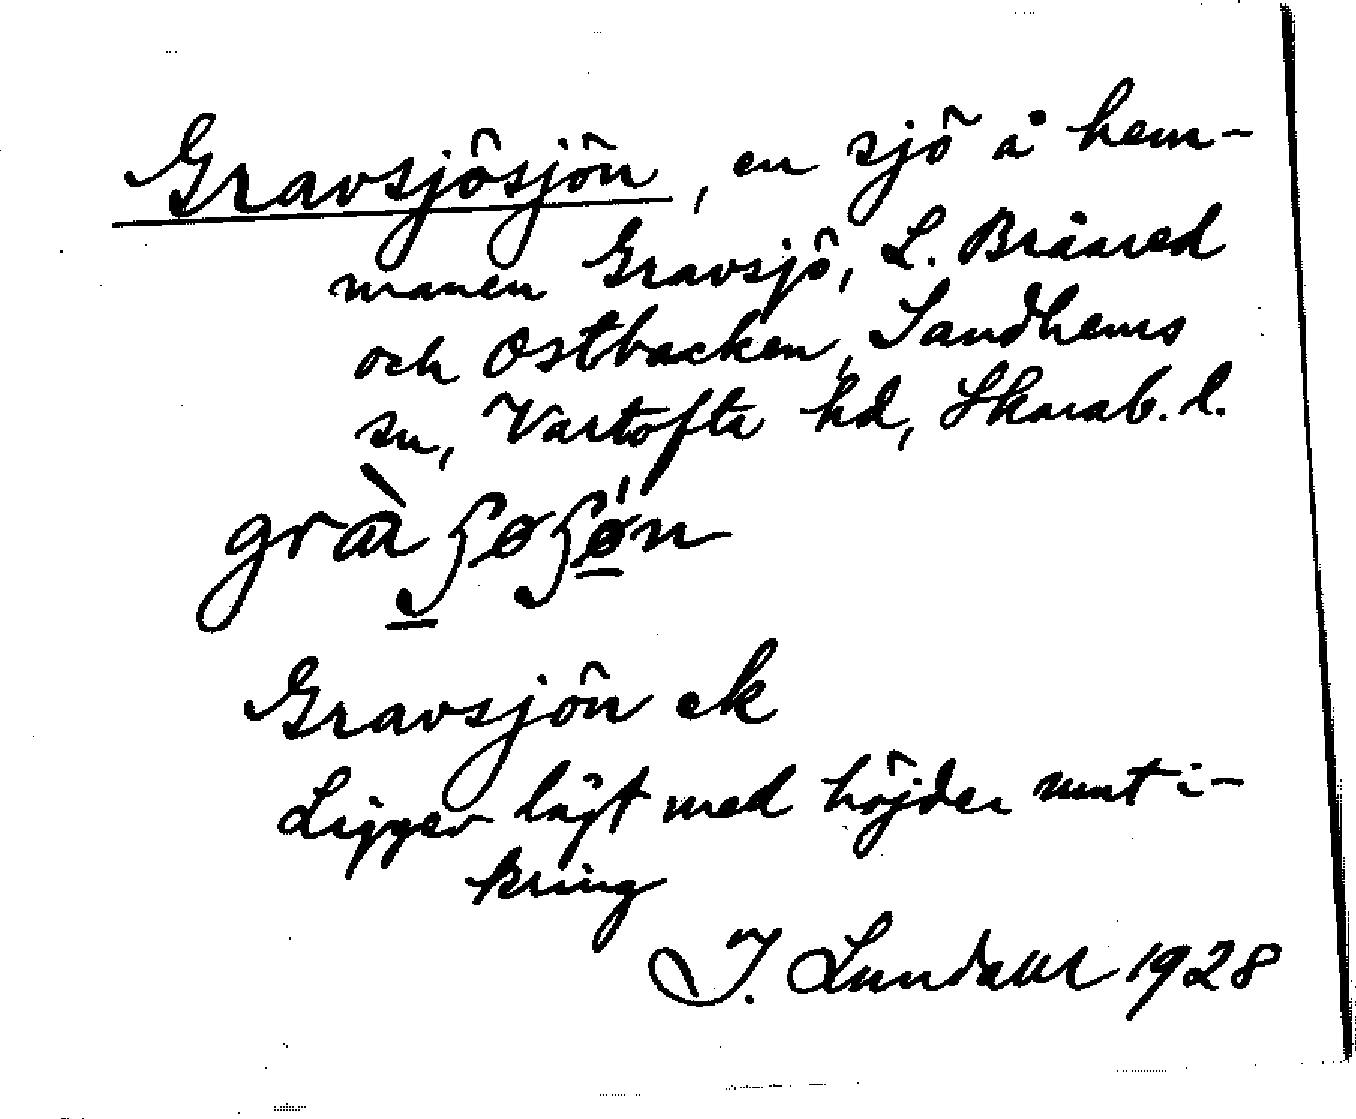 Gravsjösjön, en sjö å hem-
manen Gravsjö, L. Bråared
och Ostbacken, Sandhems
sn, Vartofta hd, Skarab. l.
Gravsjön ek
Ligger lågt med höjder runt i-
kring
I. Lundahl 1928